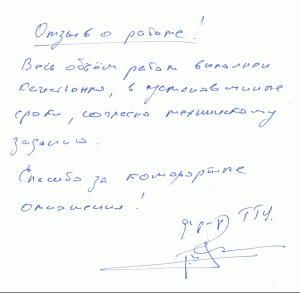 Отзыв о работе!
Весь объём работ выполнен
качественно, в установленные
сроки, согласно техническому
заданию.
Спасибо за комфортные
отношения!